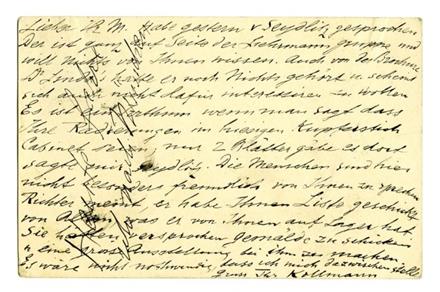 Lieber H. M. Habe gestern v Seydlitz gesprochen
Der ist ganz auf Seite der Liebermann gruppe und
will nichts von Ihnen wissen. Auch von der Brochure
Dr Linde's hatte er noch Nichts gehört u scheint
sich auch nicht dafür interessieren zu wollen
Es ist ein Irrthum wenn man sagt dass
Ihre Radierungen im hiesigen Kupferstich
Cabinet seien, nur 2 Blätter gäbe es dort
sagt mir Seydlitz. Die Menschen sind hier
nicht besonders freundlich von Ihnen zu sprechen
Richter meint er habe Ihnen Liste geschickt
von Allem was er von Ihnen auf Lager hat
Sie hätten versprochen gemälde zu schicken
u eine grosse Ausstellung bei ihm zu machen
Es wäre nicht nothwendig dass ich mich dazwischen stelle
Gruss Ihr Kollmann